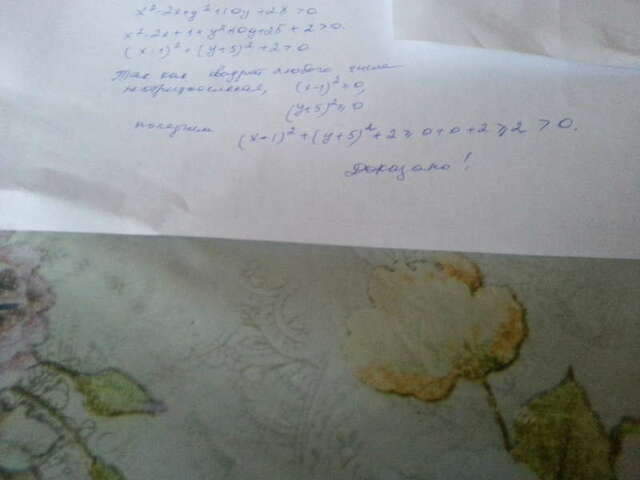 x² - 2x + y² + 10y + 28 > 0
x² - 2x + 1 + y² + 10y + 25 + 2 > 0.
(x-1)² + (y+5)² + 2 > 0
Так как квадрат любого числа
неотрицателен, (x-1)² ≥ 0,
(y+5)² ≥ 0
получим (x-1)² + (y+5)² + 2 ≥ 0 + 0 + 2 ≥ 2 > 0.
Доказано!